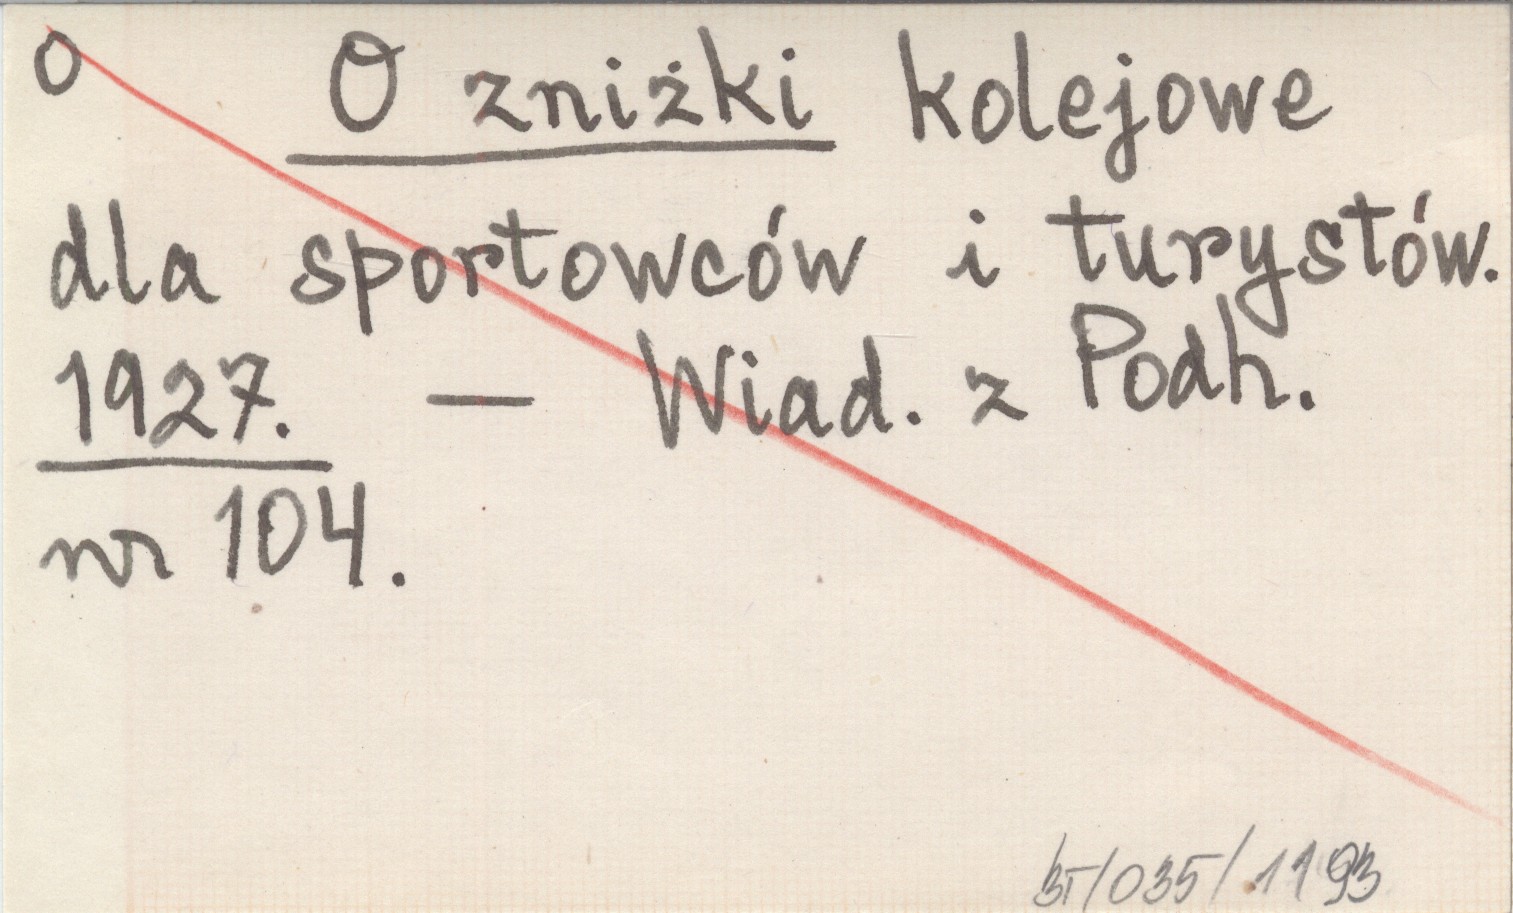 O O zniżki kolejowe
dla sportowców i turystów.
1927. — Wiad. z Podh.
nr 104.
BT/035/1193